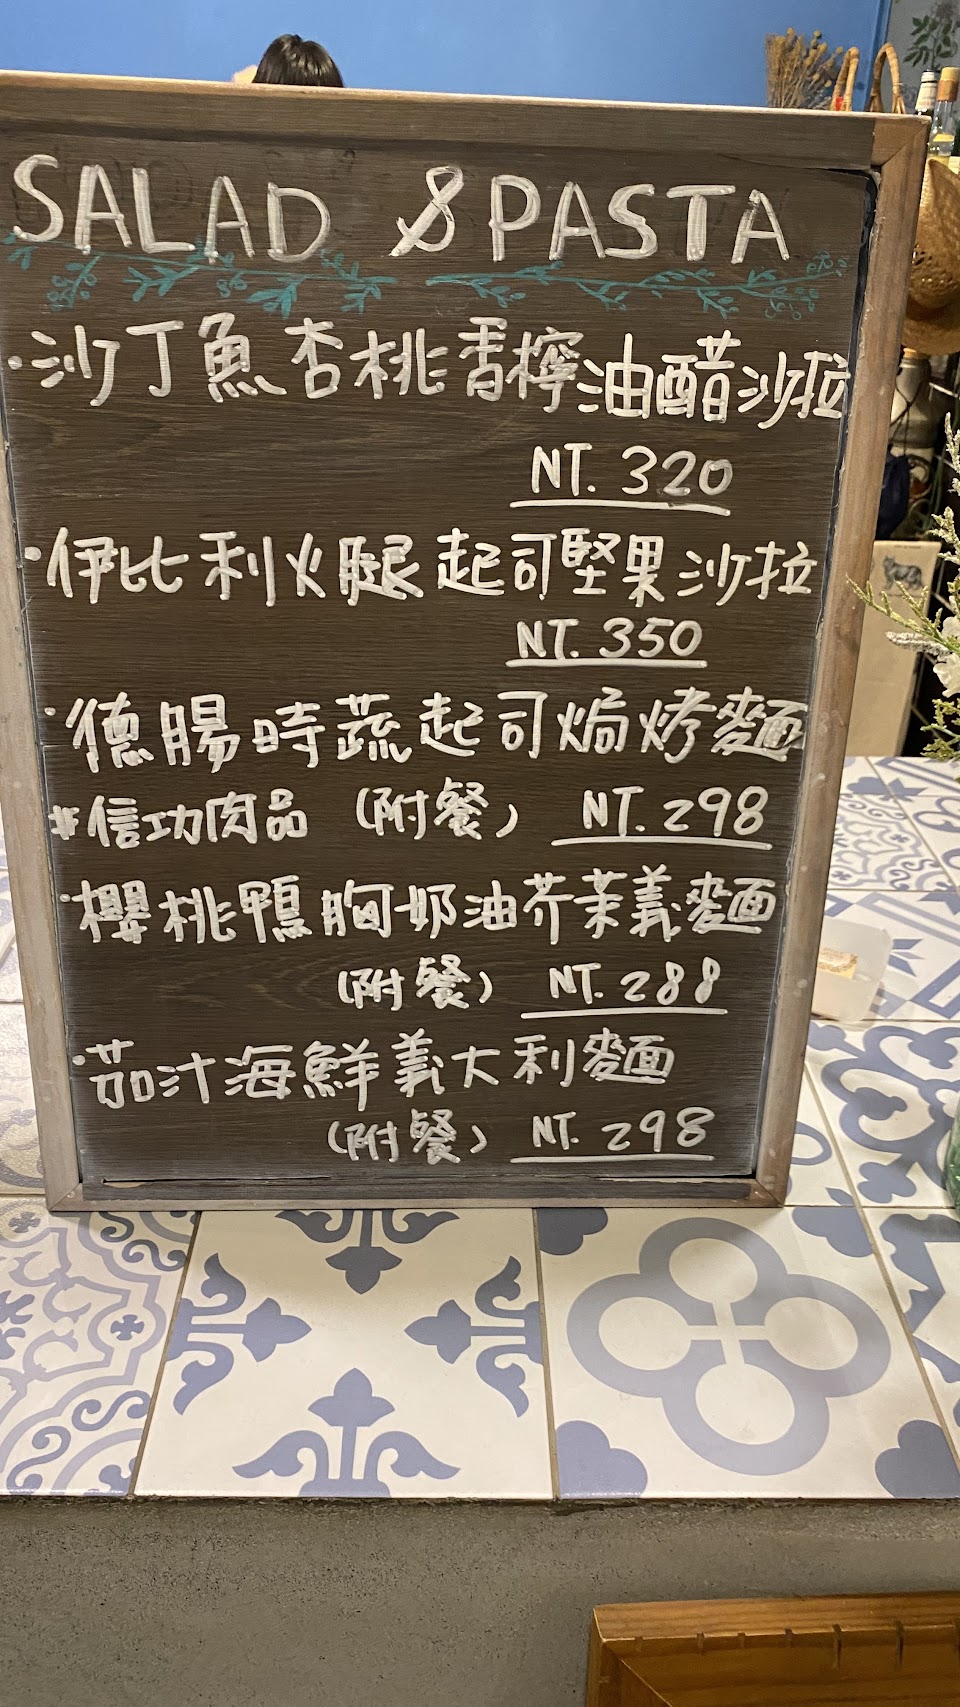 SALAD & PASTA
·沙丁魚杏桃香檸油醋沙拉
NT. 320
·伊比利火腿起司堅果沙拉
NT. 350
·德腸時蔬起司焗烤麵
#信功肉品 (附餐) NT. 298
·櫻桃鴨胸奶油芥茉義麵
(附餐) NT. 288
·茄汁海鮮義大利麵
(附餐) NT. 298